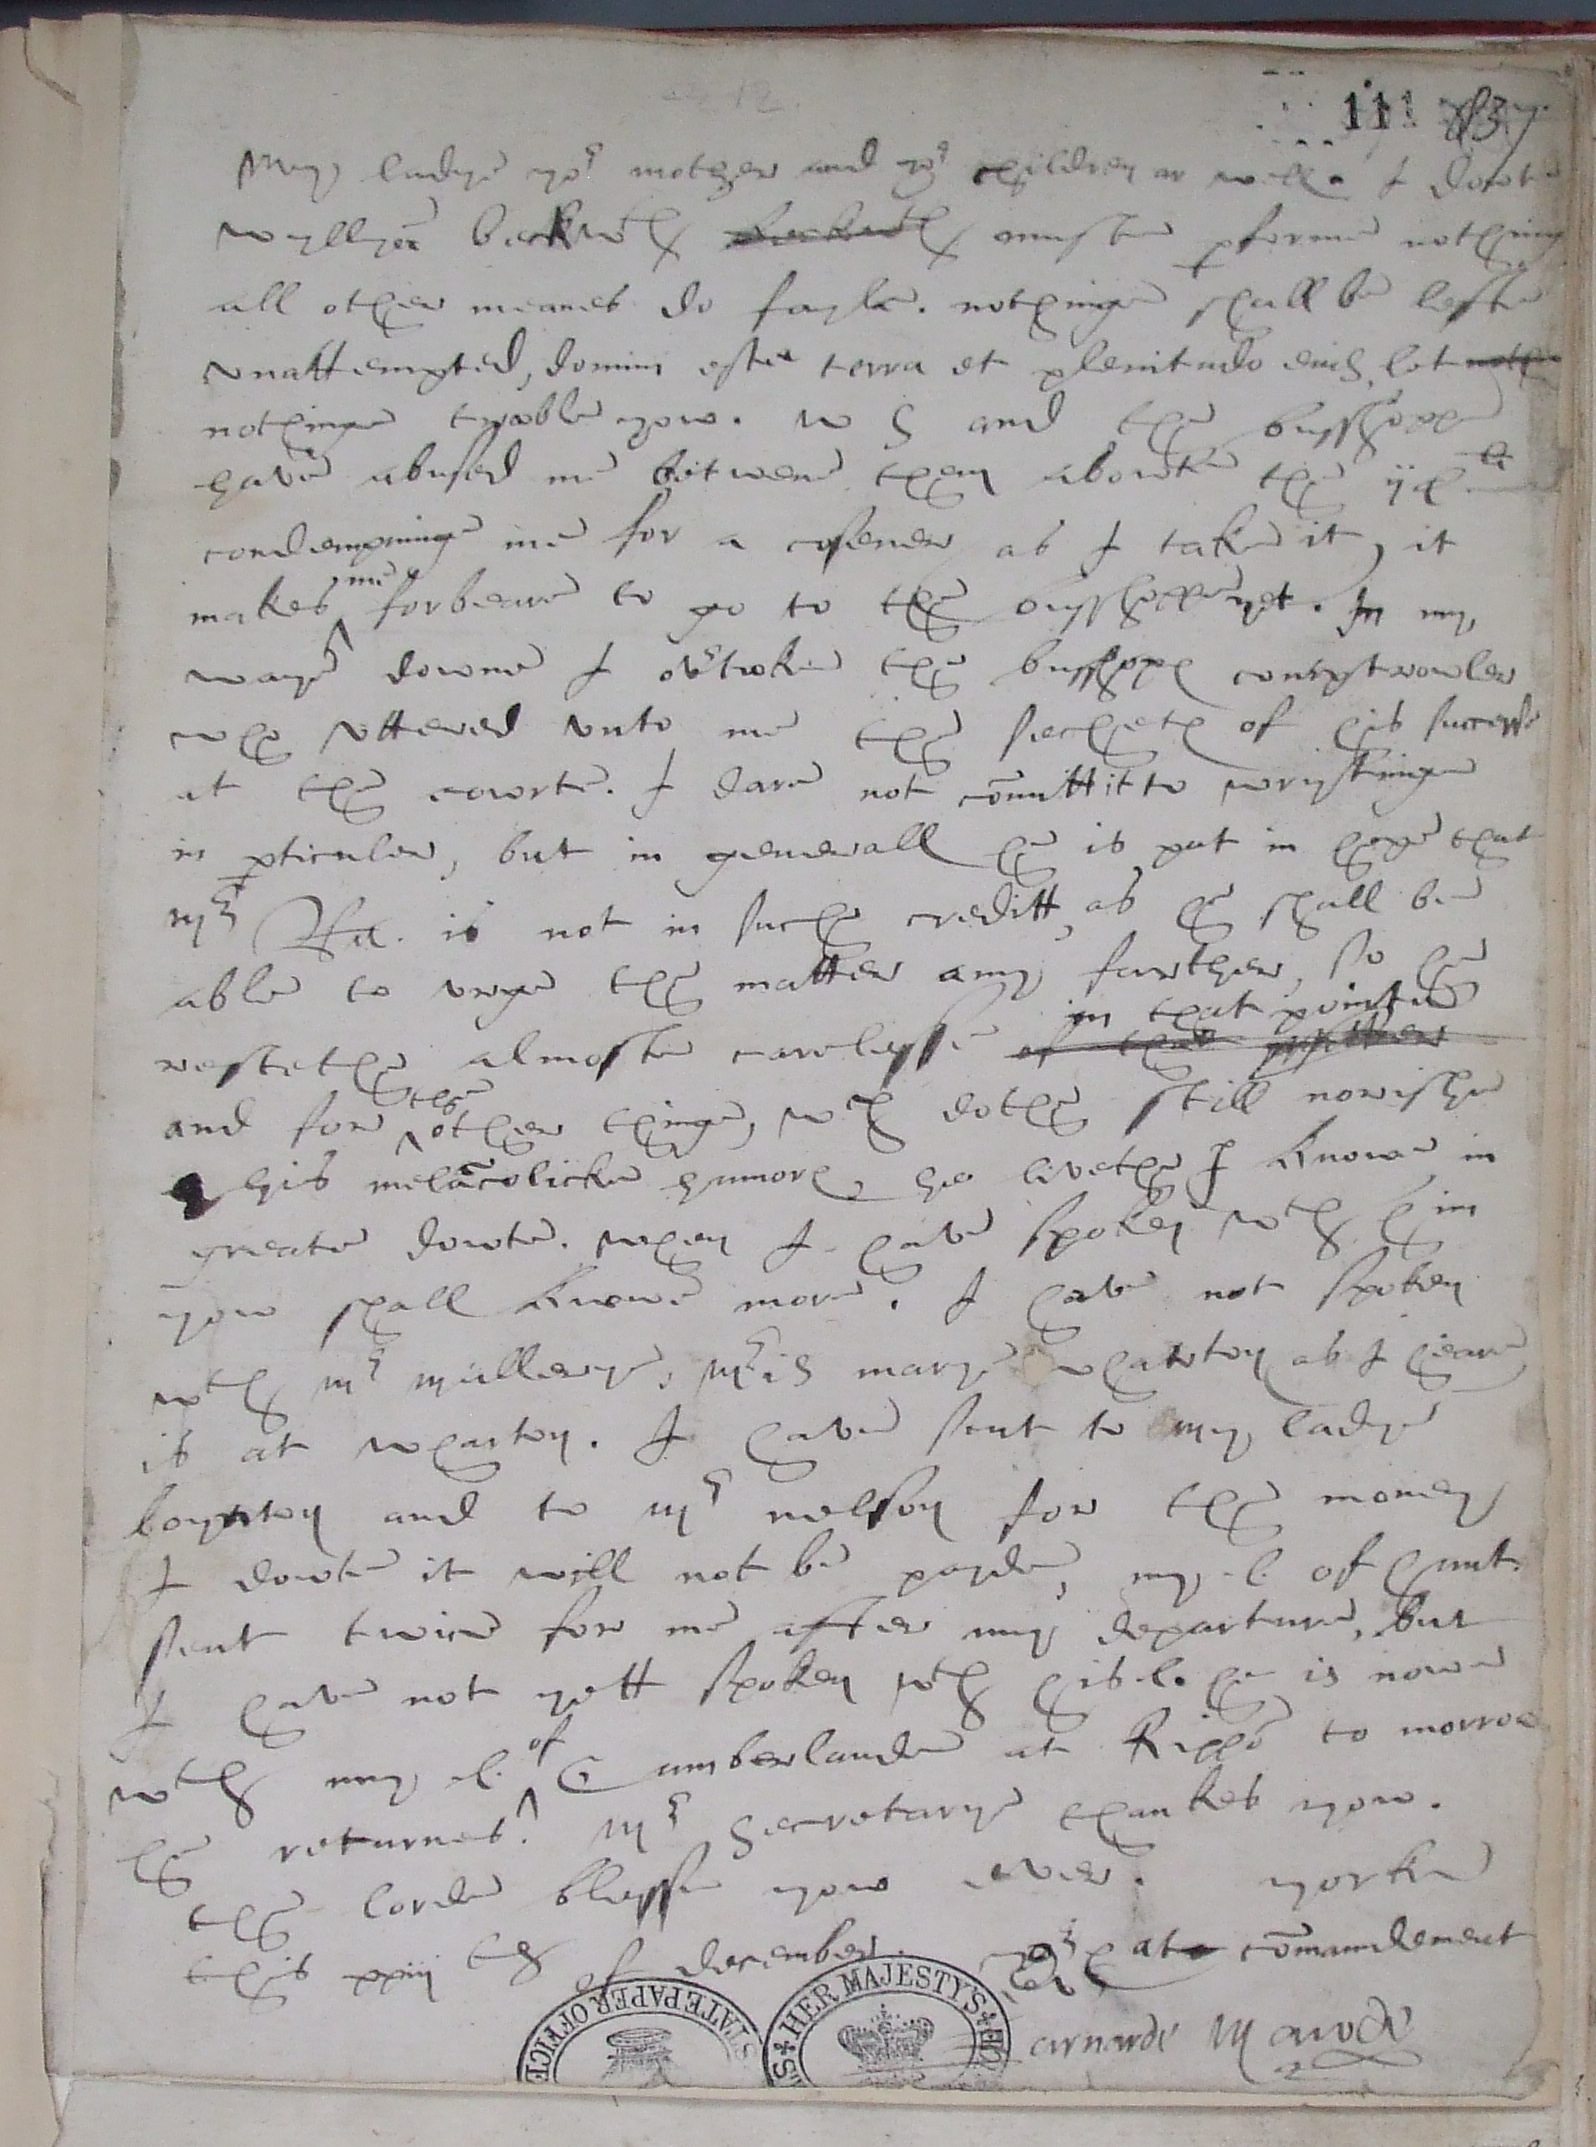 111 83
My ladye yor mother and yor children ar well. I dowte
Wyllyã Beckwth Beckwth muste pforme nothing
all other meanes do fayle. nothinge shall be lefte
vnattempted, domini este terra et plenitudo eius, let noth
nothinge troble yow. W S and the busshoppe
have abused me betwene them abowte the
condempninge me for a cosener as I take it, it
makes me forbeare to go to the busshoppe yet. In my
waye downe I ovrtoke the busshopps comptrowler
who vttered vnto me the secrete of his successe
at the cowrte. I dare not cõmitt it to wrytinge
in pticuler, but in generall he is put in hope that
Mr Ra. is not in suche creditt, as he shall be
able to vrge the matter any further, so he
in that pointe
restethe almoste carelesse of that matter
and for the other thinge, wch dothe still norishe
his melãcolicke humore, he livethe I knowe in
greate dowte. when I have spoken wth him
yow shall knowe more. I have not spoken
wth Mr Mallerye, Mris marye Wharton as I heare
is at Wharton. I have sent to my ladye
boynton and to Mr nelson for the money
I dowte it will not be payde, my .l. of Hunt.
sent twice for me after my departure, but
I have not yett spoken wth his .l. he is nowe
wth my .l. of Cumberlande at Rippõ to morroe
he returnes. Mr Secretarye thankes yow.
the lorde blysse yow ever. yorke
this xxiiij th of december. Yors at cõmaundement
Barnarde Mawde
STATE PAPER OFFICE
HER MAJESTY'S